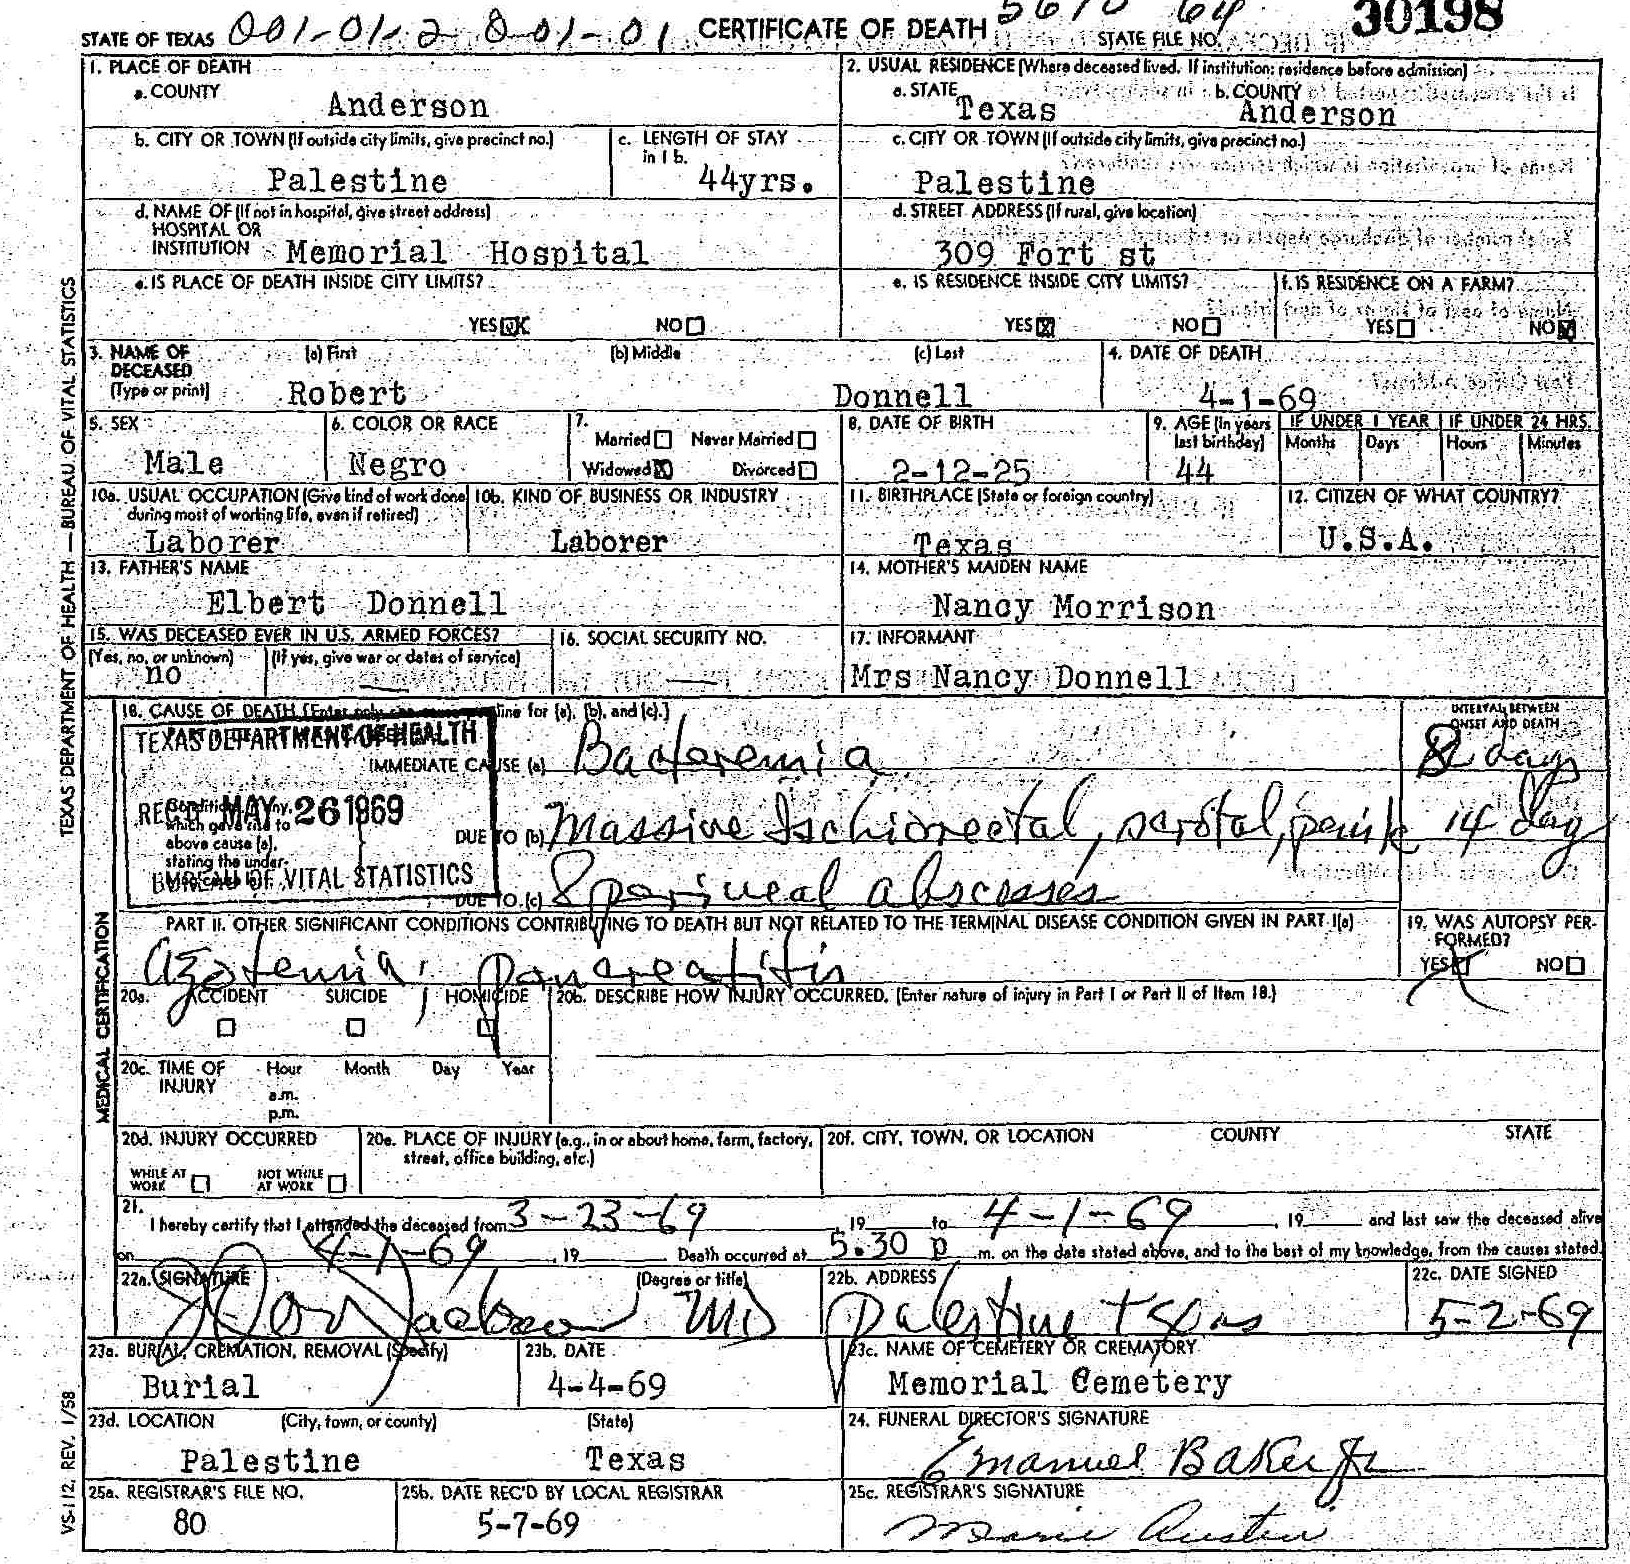 STATE OF TEXAS 001-01-2 0-01-01 CERTIFICATE OF DEATH STATE FILE NO. 30198
1. PLACE OF DEATH
a. COUNTY
Anderson
2. USUAL RESIDENCE (Where deceased lived. If institution: residence before admission)
a. STATE b. COUNTY
Texas Anderson
b. CITY OR TOWN (If outside city limits, give precinct no.)
Palestine
c. LENGTH OF STAY
in 1 b.
44yrs.
c. CITY OR TOWN (If outside city limits, give precinct no.)
Palestine
d. NAME OF (If not in hospital, give street address)
HOSPITAL OR
INSTITUTION Memorial Hospital
d. STREET ADDRESS (If rural, give location)
309 Fort st
e. IS PLACE OF DEATH INSIDE CITY LIMITS?
YES NO
e. IS RESIDENCE INSIDE CITY LIMITS?
YES NO
f. IS RESIDENCE ON A FARM?
YES NO
3. NAME OF
DECEASED
(Type or print)
(a) First (b) Middle (c) Last
Robert Donnell
4. DATE OF DEATH
4-1-69
5. SEX
Male
6. COLOR OR RACE
Negro
7.
Married Never Married
Widowed X Divorced
8. DATE OF BIRTH
2-12-25
9. AGE (In years
last birthday)
44
IF UNDER 1 YEAR IF UNDER 24 HRS.
Months Days Hours Minutes
10a. USUAL OCCUPATION (Give kind of work done
during most of working life, even if retired)
Laborer
10b. KIND OF BUSINESS OR INDUSTRY
Laborer
11. BIRTHPLACE (State or foreign country)
Texas
12. CITIZEN OF WHAT COUNTRY?
U.S.A.
13. FATHER'S NAME
Elbert Donnell
14. MOTHER'S MAIDEN NAME
Nancy Morrison
15. WAS DECEASED EVER IN U.S. ARMED FORCES?
(Yes, no, or unknown) (If yes, give war or dates of service)
no
16. SOCIAL SECURITY NO.
17. INFORMANT
Mrs Nancy Donnell
18. CAUSE OF DEATH [Enter only one cause per line for (a), (b), and (c).]
INTERVAL BETWEEN
ONSET AND DEATH
TEXAS DEPARTMENT OF HEALTH
IMMEDIATE CAUSE (a) Bacteremia 8 days
REC'D MAY 26 1969
Conditions, if any,
which gave rise to
above cause (a),
stating the under-
DUE TO (b) Massive Ischiorectal, scrotal, penile 14 day
BUREAU OF VITAL STATISTICS
DUE TO (c) & perineal abscesses
PART II. OTHER SIGNIFICANT CONDITIONS CONTRIBUTING TO DEATH BUT NOT RELATED TO THE TERMINAL DISEASE CONDITION GIVEN IN PART I(a)
Azotemia, pancreatitis
19. WAS AUTOPSY PER-
FORMED?
YES NO
20a. ACCIDENT SUICIDE HOMICIDE
20b. DESCRIBE HOW INJURY OCCURRED. (Enter nature of injury in Part I or Part II of Item 18.)
20c. TIME OF
INJURY
Hour Month Day Year
a.m.
p.m.
20d. INJURY OCCURRED
WHILE AT
WORK
NOT WHILE
AT WORK
20e. PLACE OF INJURY (e.g., in or about home, farm, factory,
street, office building, etc.)
20f. CITY, TOWN, OR LOCATION COUNTY STATE
21.
I hereby certify that I attended the deceased from 3-23-69, 19 to 4-1-69, 19 and last saw the deceased alive
on 4-1-69, 19 . Death occurred at 5.30 p .m. on the date stated above, and to the best of my knowledge, from the causes stated.
22a. SIGNATURE (Degree or title)
Jackson MD
22b. ADDRESS
Palestine Texas
22c. DATE SIGNED
5-2-69
23a. BURIAL, CREMATION, REMOVAL (Specify)
Burial
23b. DATE
4-4-69
23c. NAME OF CEMETERY OR CREMATORY
Memorial Cemetery
23d. LOCATION (City, town, or county) (State)
Palestine Texas
24. FUNERAL DIRECTOR'S SIGNATURE
Emanuel Baker Jr
25a. REGISTRAR'S FILE NO.
80
25b. DATE REC'D BY LOCAL REGISTRAR
5-7-69
25c. REGISTRAR'S SIGNATURE
Marie Austin
TEXAS DEPARTMENT OF HEALTH — BUREAU OF VITAL STATISTICS
MEDICAL CERTIFICATION
VS-112, REV. 1/58